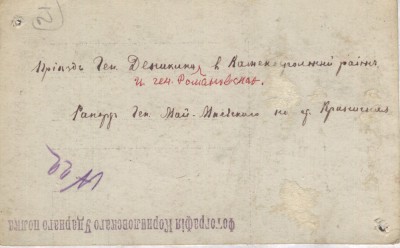 21
Пріѣздъ Ген. Деникина в Каменноугольный районъ
и ген. Романовскаго.
Рапортъ Ген. Май-Маевскаго на ст.
Фотографія Корниловскаго Ударнаго полка